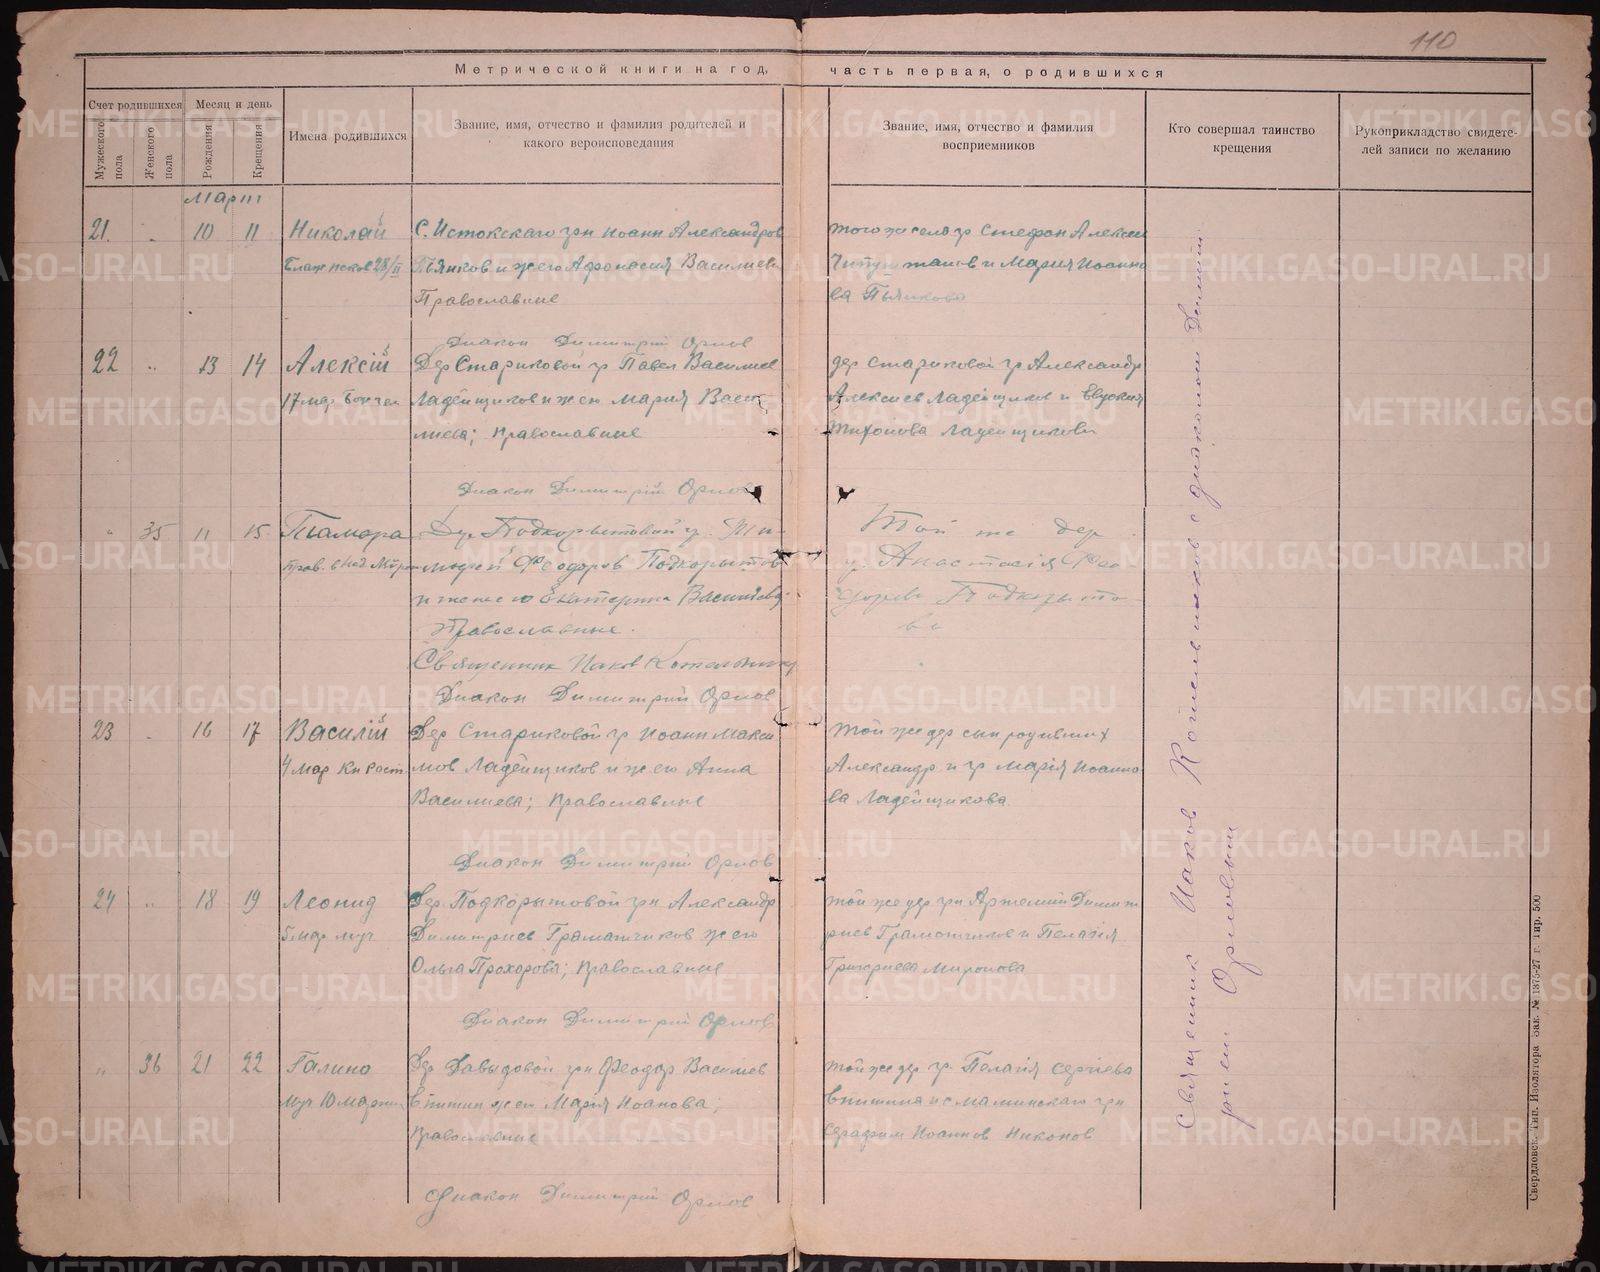 110
Метрической книги на год, часть первая, о родившихся
Счет родившихся
Мужеского пола
Женского пола
Месяц и день
Рождения
Крещения
Имена родившихся
Звание, имя, отчество и фамилия родителей и
какого вероисповедания
Звание, имя, отчество и фамилия
восприемников
Кто совершал таинство
крещения
Рукоприкладство свидете-
лей записи по желанию
Март
21 " 10 11 Николай
С. Истокскаго гр-н Иоанн Александров
Пьянков и ж его Афонасия Василиева
Православные
того же села гр Стефан Алексеев
и Мария Иоанно
ва Пьянкова
Диакон Димитрий Орлов
22 " 13 14 Алексій
17 мар.
Дер Стариковой гр Павел Василиев
Ладейщиков и ж его Мария Васи
лиева; Православные
дер Стариковой гр Александр
Алексиев Ладейщиков и Евдокия
Тихонова Ладейщикова
Диакон Димитрій Орлов
" 35 11 15 Тамара
Дер Подкорытовой гр. Ти-
мофей Феодоров Подкорытов
и жена его Екатерина Васильева
Православные.
Той же дер
гр. Анастасія Фео
дорова Подкорыто
ва
Священник Иаков Котельников
Диакон Димитрий Орлов
23 " 16 17 Василій
4 мар Кн Рост
Дер Стариковой гр Иоанн Макси
мов Ладейщиков и ж его Анна
Василиева; Православные
той же дер сын родивших
Александр и гр Марія Иоанно
ва Ладейщикова
Диакон Димитрий Орлов
24 " 18 19 Леонид
5 мар муч
Дер. Подкорытовой гр-н Александр
Димитриев Граматчиков ж его
Ольга Прохорова; Православные
той же дер гр-н Артемий Димит
риев Грамотчиков и Пелагія
Григориева Миронова
Диакон Димитрий Орлов
" 36 21 22 Галина
муч 10 марта
Дер Давыдовой гр-н Феодор Василиев
ж его Марія Иоанова;
Православные
той же дер гр. Пелагія Сергіева
и с Маминскаго гр-н
Серафим Иоаннов Никонов
Диакон Димитрий Орлов
Священник Иаков Котельников с диаконом Димит
рием Орловым
Свердловск. Тип. Изолятора Зак. № 1375-27 г. Тир. 500
METRIKI.GASO-URAL.RU